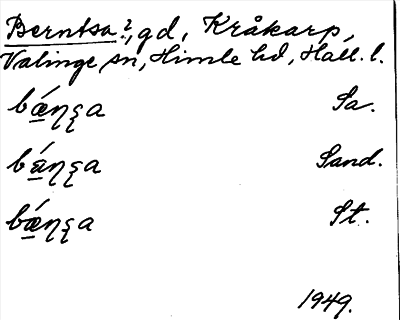 Berntsa?, gd, Kråkarp,
Valinge sn, Himle hd, Hall. l.
bǽŋʂa Sa.
bǽŋʂa Sand.
bǽŋʂa St.
1949.